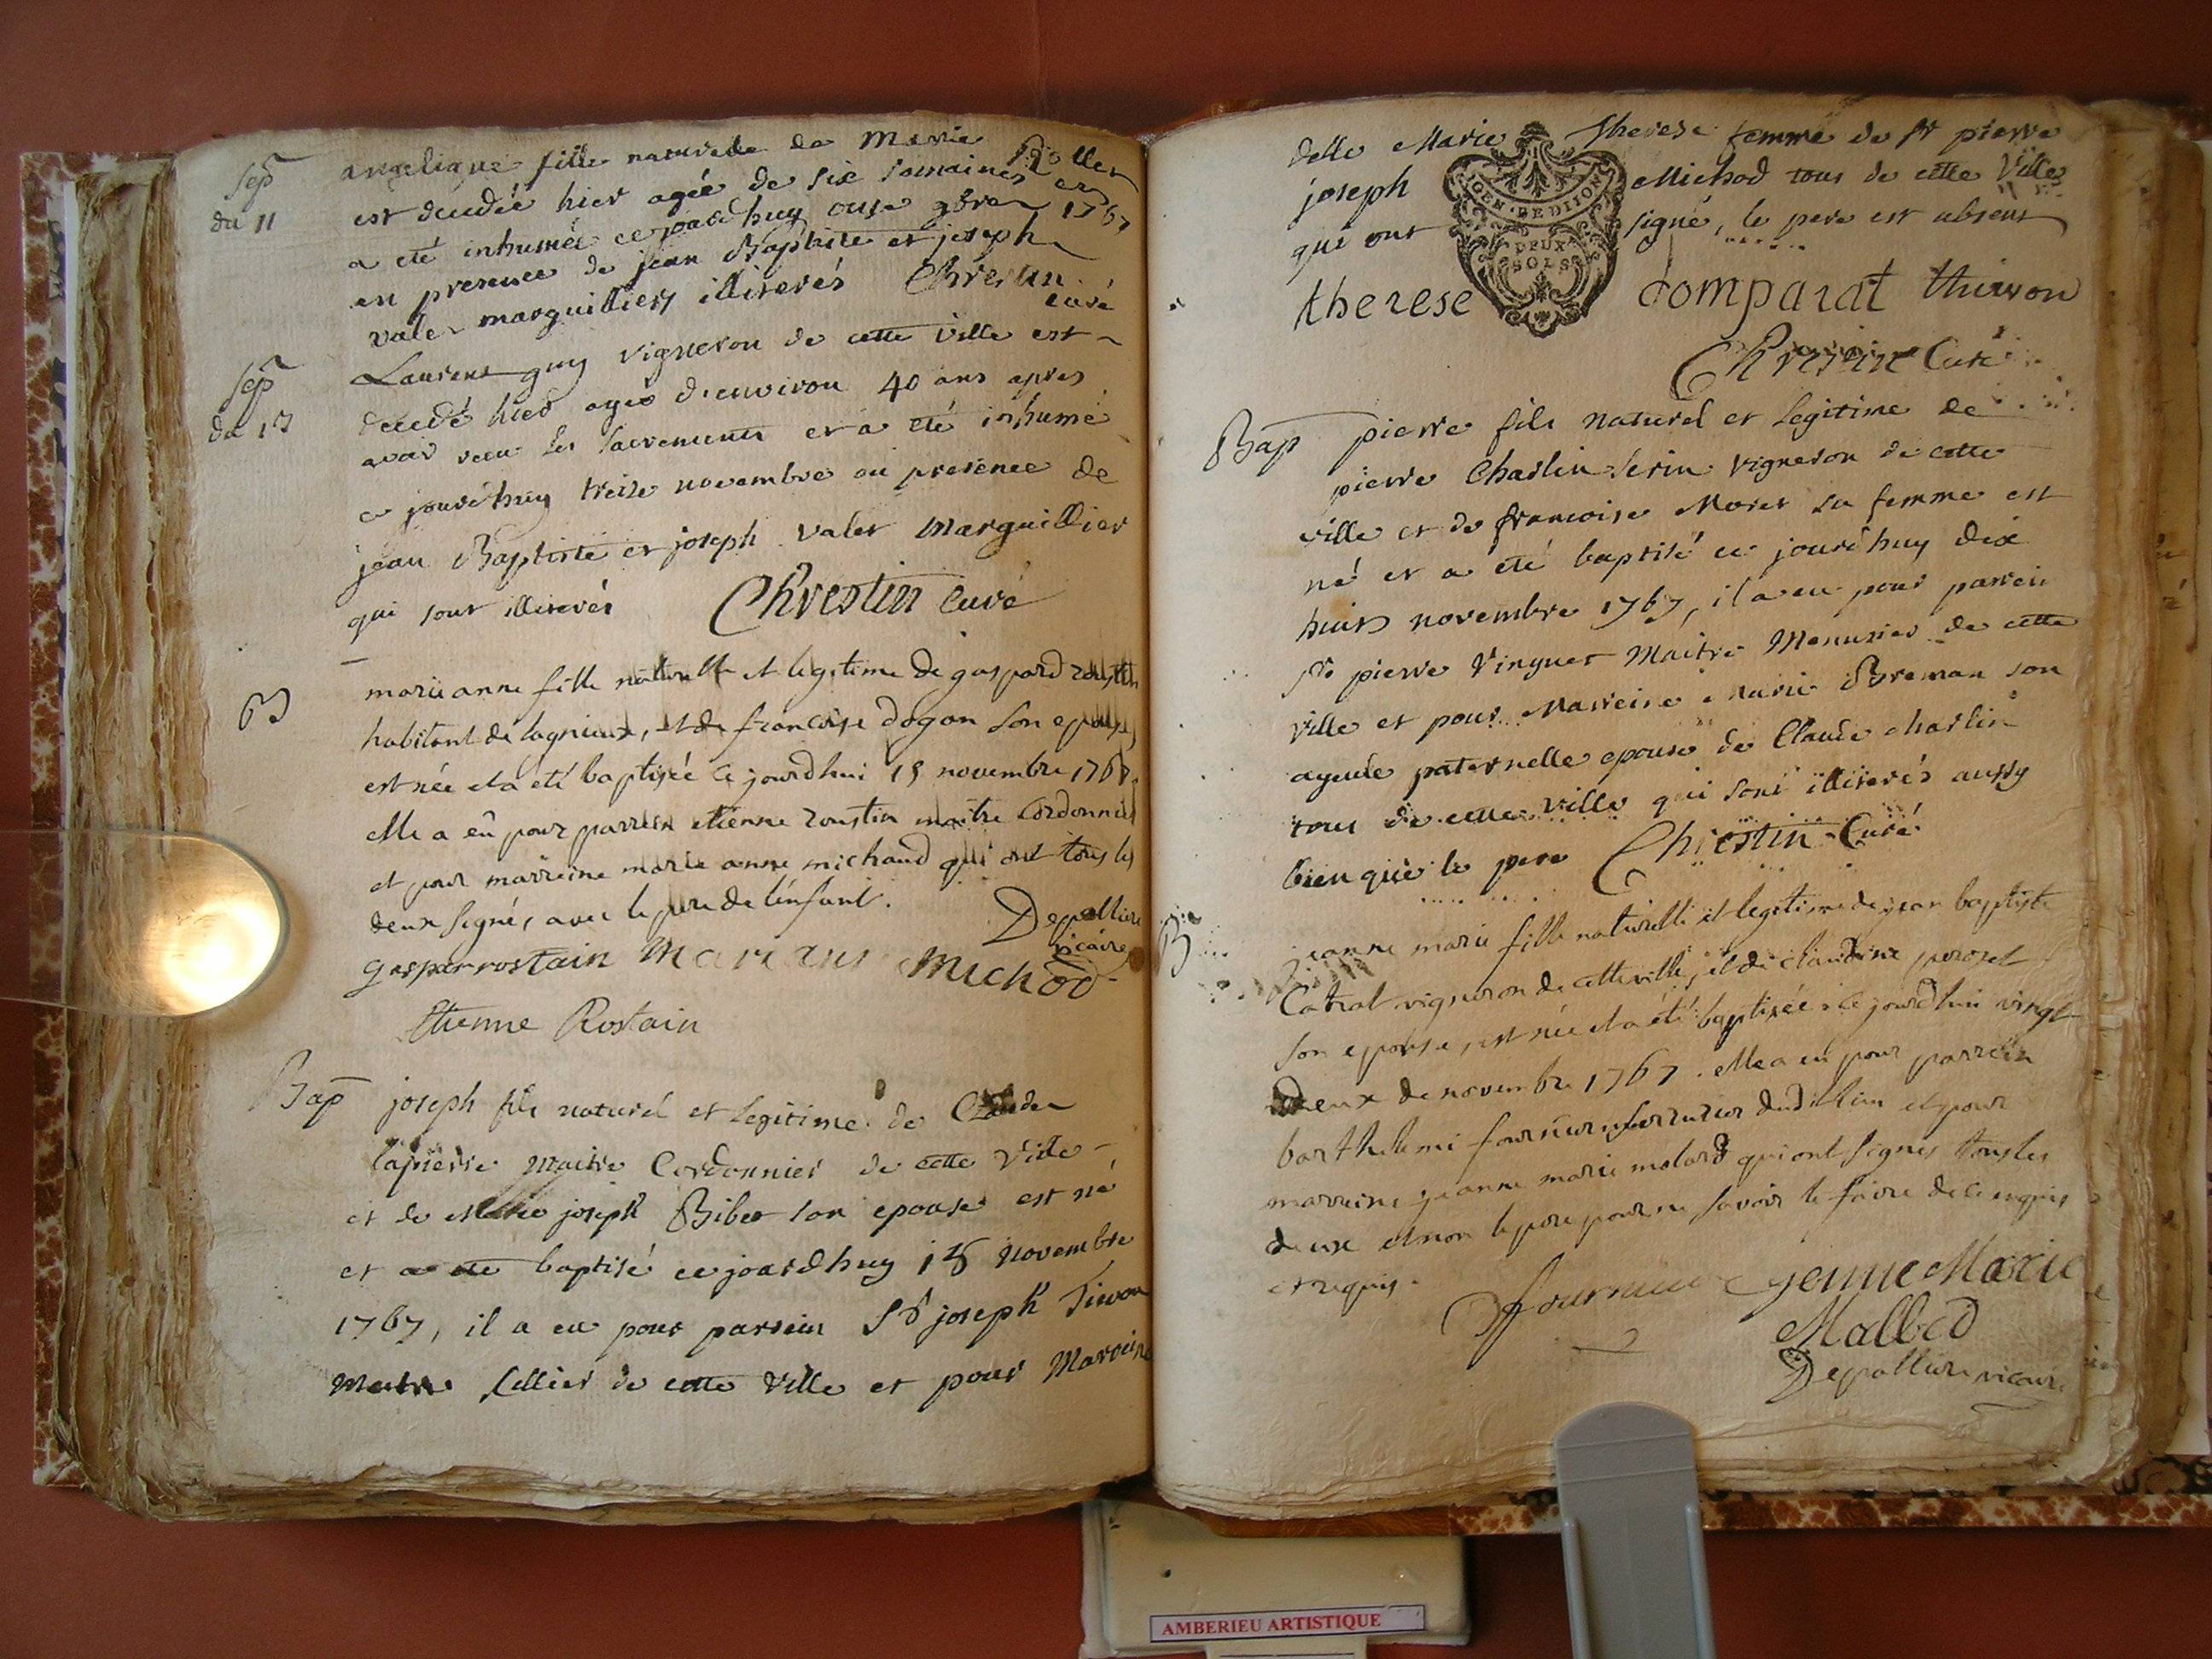 Sep
du 11
angelique fille naturelle de Marie
est decedée hier agée de six semaines et
a eté inhumée ce jourdhuy onze 9bre 1767
en presence de jean Baptiste et joseph
valer marguilliers illiterés Chrestin
curé
Sep
du 13
Laurent guy vigneron de cette ville est
decedé hier agé d'environ 40 ans apres
avoir recu les sacrements et a eté inhumé
ce jourdhuy treize novembre en presence de
jean Baptiste et joseph valer Marguillier
qui sont illiterés Chrestin curé
B
marianne fille naturelle et legitime de gaspard
habitant de lagnieux, et de francoise dogon son epouse,
est née et a eté baptisée ce jourdhui 15 novembre 1767.
elle a eû pour parrein etienne roustin maitre Cordonnier
et pour marreine marie anne michaud qui ont tous les
deux signés avec le pere de l'enfant. Depalliere
vicaire
gaspar rostain Mariane Michod
Etienne Rostain
Bap joseph fils naturel et legitime de Claude
lapierre Maitre Cordonnier de cette Ville
et de Marie joseph Biber son epouse est né
et a eté baptisé ce jourdhuy 15 Novembre
1767, il a eu pour parrein Sr joseph Tivron
Maitre sellier de cette Ville et pour Marreine
delle Marie Therese femme de Sr pierre
joseph Michod tous de cette Ville
qui ont signé, le pere est absent
GEN. DE DIJON
DEUX
SOLS
therese Comparat thivron
Chrestin Curé
Bap pierre fils naturel et legitime de
pierre Charlin Serin vigneron de cette
ville et de francoise Morer sa femme est
né et a eté baptisé ce jourdhuy dix
huit novembre 1767, il a eu pour parrein
Sr pierre Vinguer Maitre Menusier de cette
ville et pour Marreine Marie Breman son
ayeule paternelle epouse de Claude charlin
tous de cette ville qui sont illiterés aussy
bien que le pere Chrestin Curé
B
jeanne marie fille naturelle et legitime de jean baptiste
Catral vigneron de cette ville, et de claudine perozet
son epouse, est née et a eté baptisée ce jourdhui vingt
deux de novembre 1767. elle a eû pour parrein
barthelemi fournier serrurier dudit lieu et pour
marreine jeanne marie molard qui ont signés tous les
deux et non le pere pour ne savoir le faire de ce enquis
et requis.
fournier jenne Marie
Malbed
Depalliere vicaire
AMBERIEU ARTISTIQUE